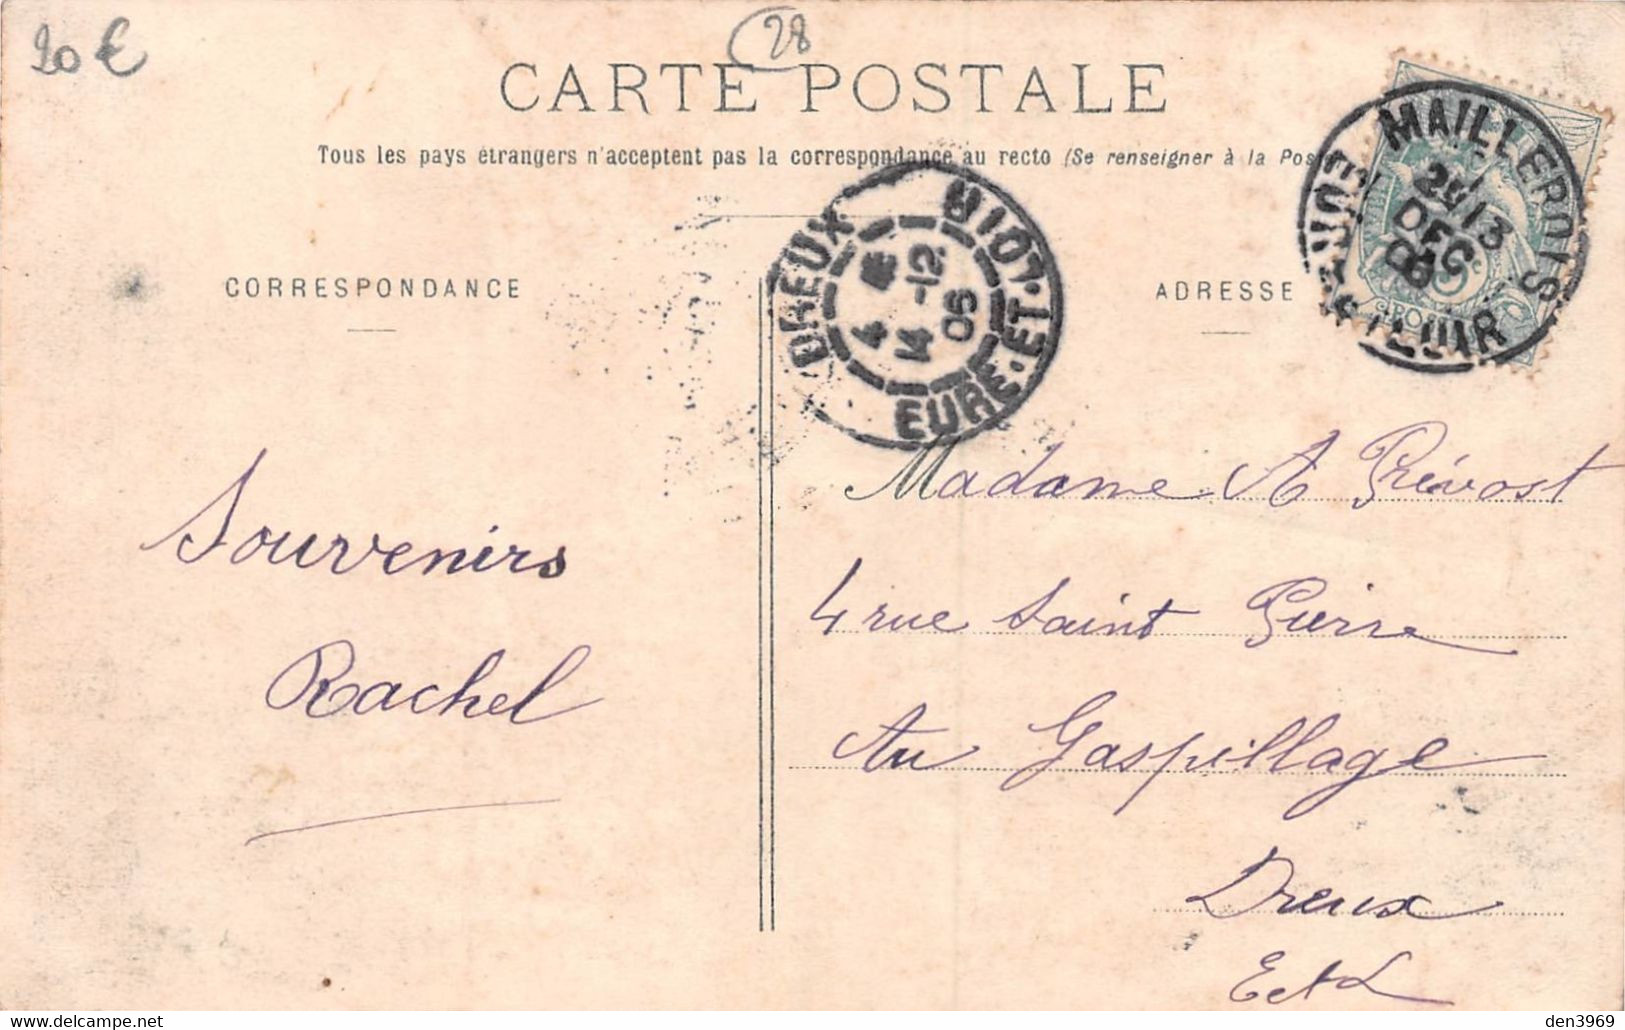 20 €
28
CARTE POSTALE
Tous les pays étrangers n'acceptent pas la correspondance au recto (Se renseigner à la Pos
CORRESPONDANCE
ADRESSE
DREUX
4 E
14 -12
06
EURE-ET-LOIR
MAILLEBOIS
13
DEC
06
EURE
LOIR
5c
Souvenirs
Rachel
Madame A Prévost
4 rue Saint Pierre
Au Gaspillage
Dreux
E et L
den3969